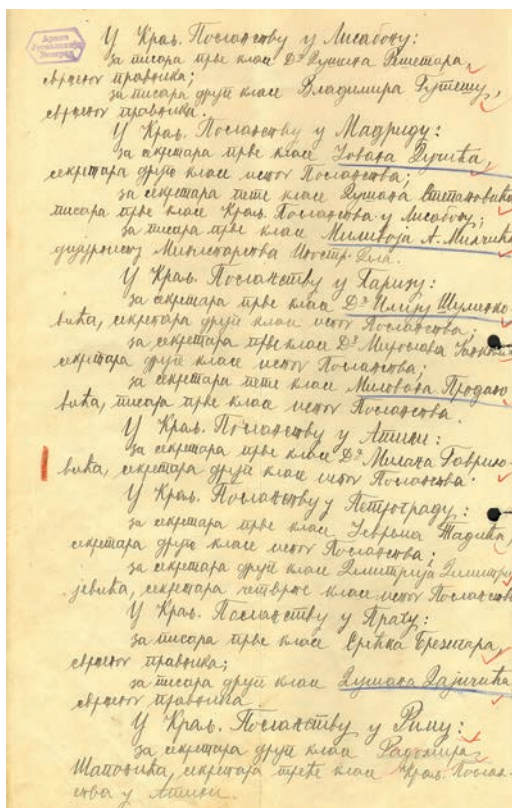 Архив
Југославије
Београд
У Краљ. Посланству у Лисабону:
за писара прве класе Др Душана Решетара,
сврш. правника;
за писара друге класе Владимира
сврш. правника.
У Краљ. Посланству у Мадриду:
за секретара прве класе Јована Дучића,
секретара друге класе истог Посланства;
за секретара пете класе Душана Степановића
писара прве класе Краљ. Посланства у Лисабону;
за писара прве класе Миливоја А. Милчића
Министарства Иностр. Дела.
У Краљ. Посланству у Паризу:
за секретара прве класе Др Илију Шуменко-
вића, секретара друге класе истог Посланства;
за секретара прве класе Др Мирослава
секретара друге класе истог Посланства;
за секретара пете класе Милована Продано
вића, писара прве класе истог Посланства.
У Краљ. Посланству у Атини:
за секретара прве класе Др Милана Гаврило-
вића, секретара друге класе истог Посланства.
У Краљ. Посланству у Петрограду:
за секретара прве класе Јеврема Тадића,
секретара друге класе истог Посланства;
за секретара друге класе Димитрија Димитри
јевића, секретара четврте класе истог Посланства
У Краљ. Посланству у Прагу:
за писара прве класе Срећка
сврш. правника;
за писара друге класе Душана
сврш. правника.
У Краљ. Посланству у Риму:
за секретара друге класе Радомира
Шапоњића, секретара треће класе Краљ. Послан-
ства у Атини.